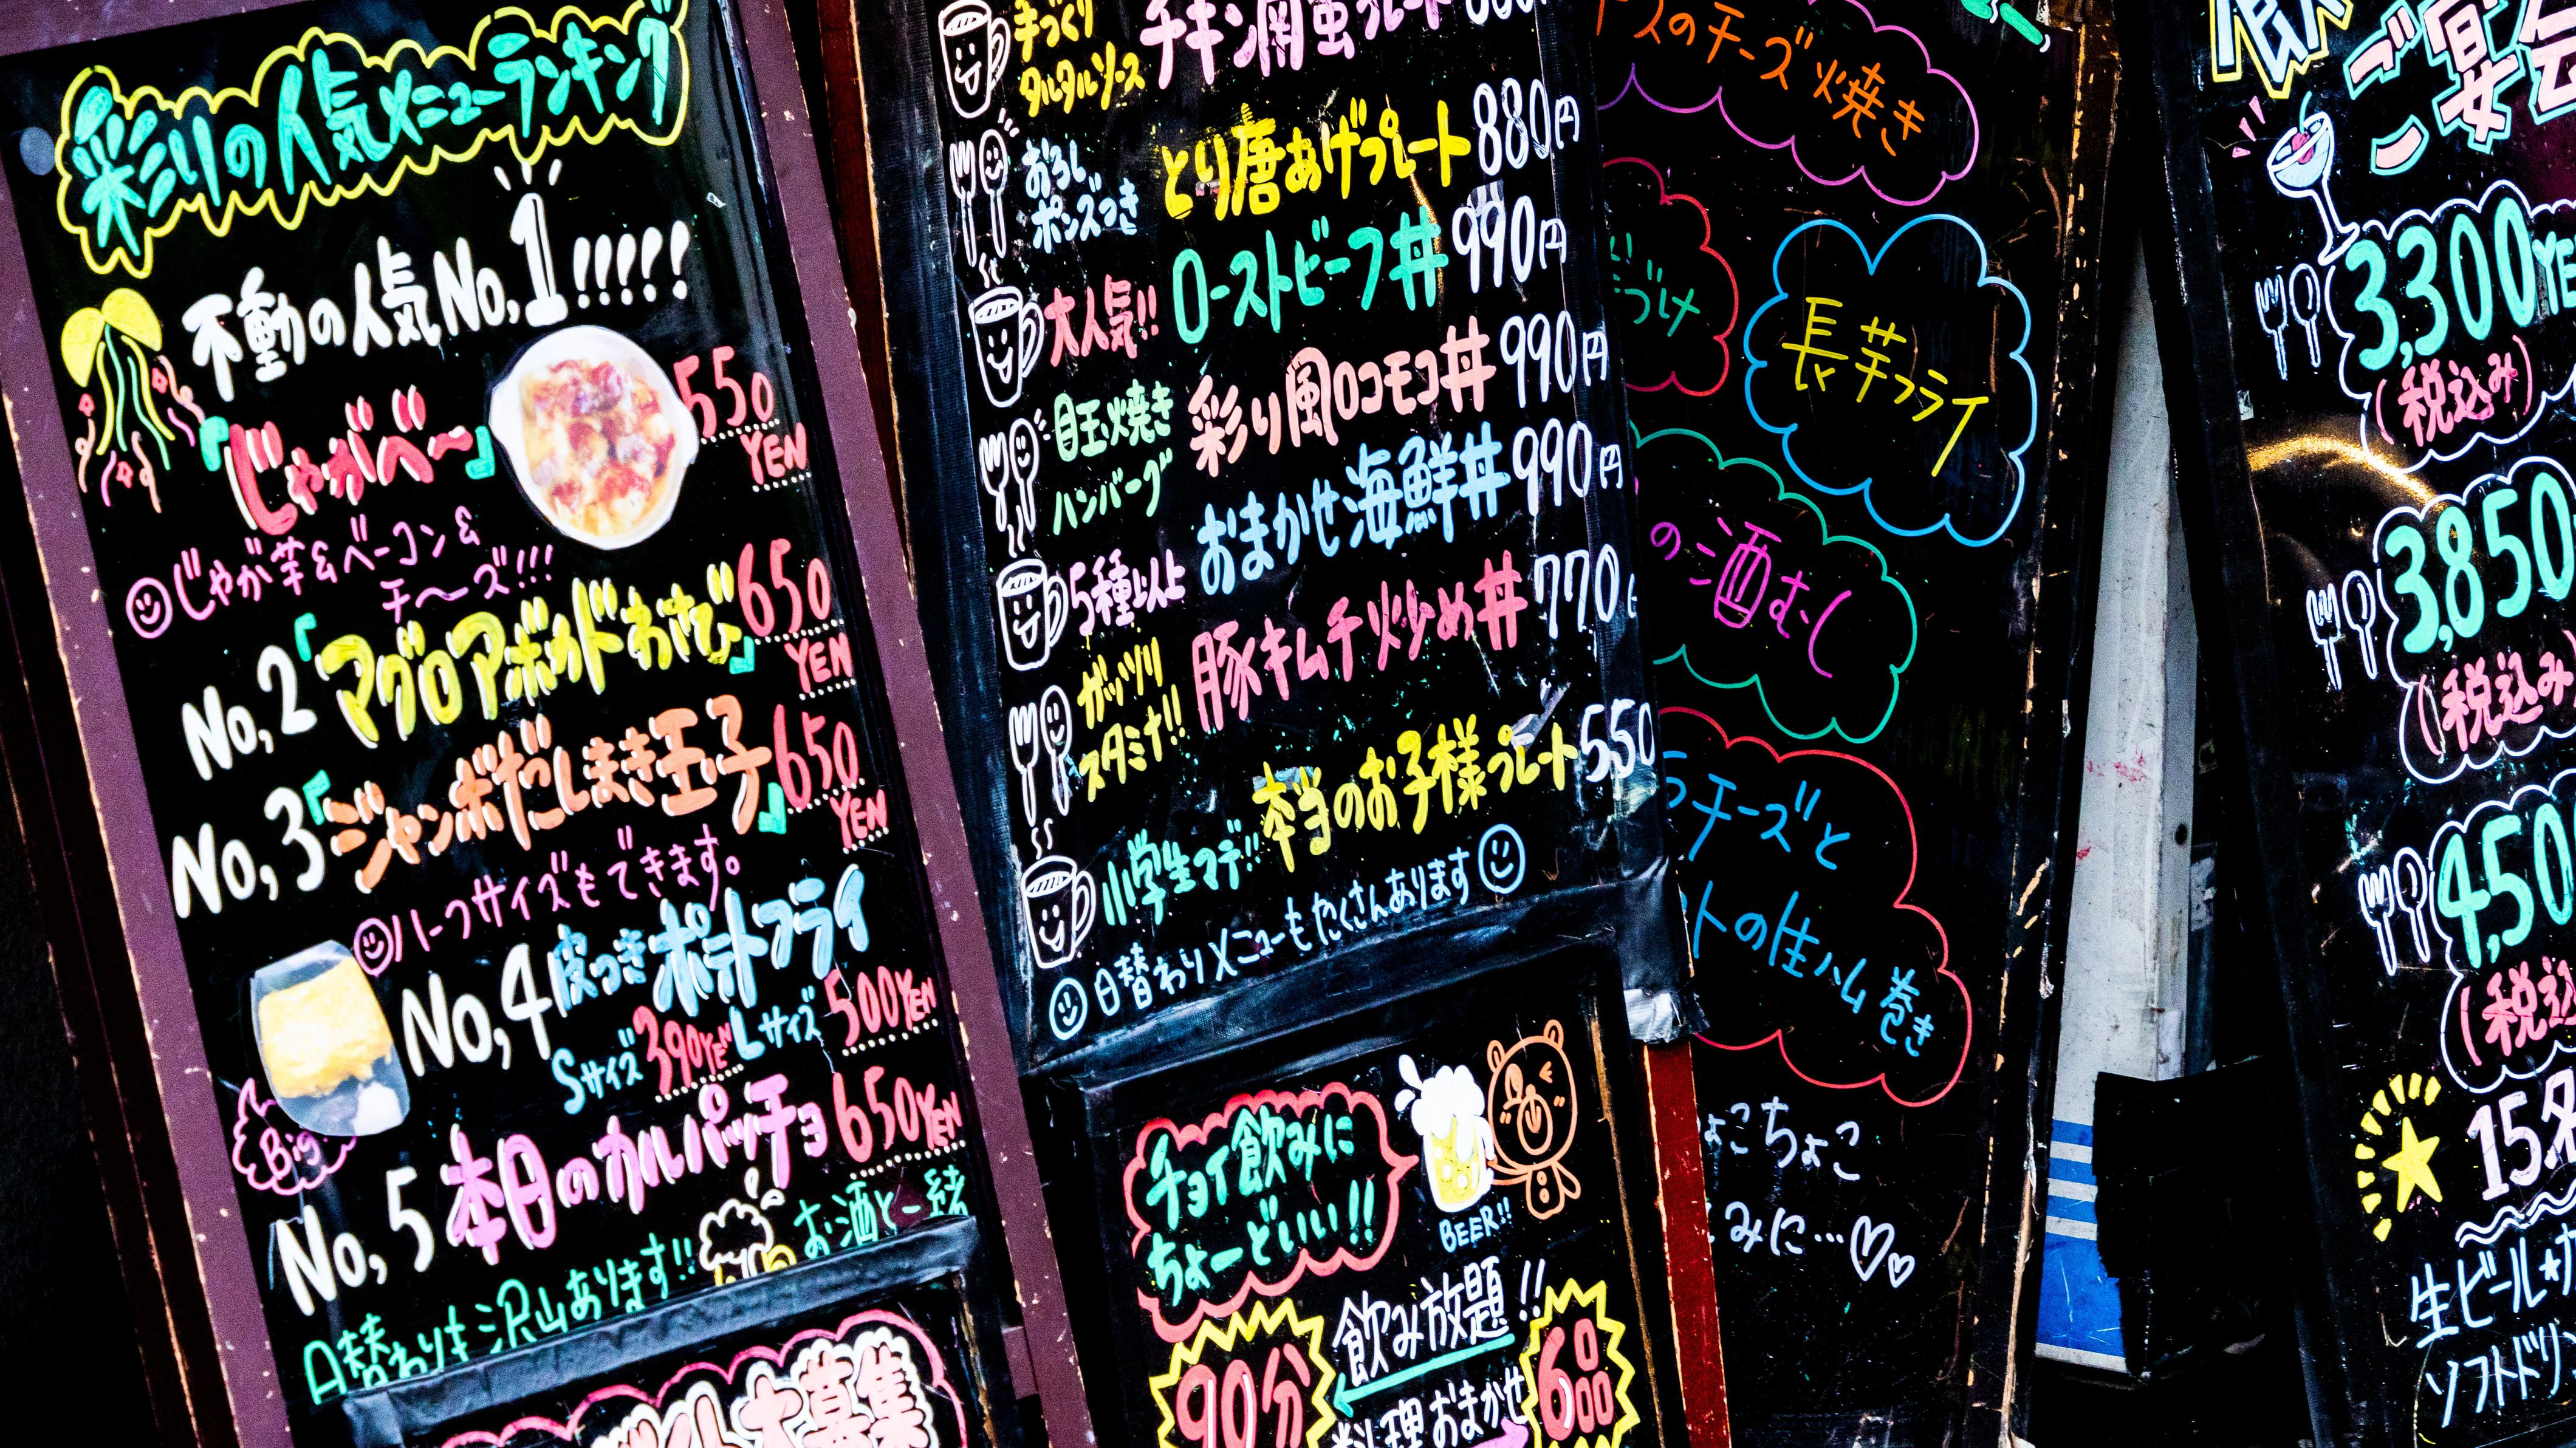 彩りの人気メニューランキング
不動の人気No,1!!!!!
『じゃがべ〜』
550
YEN
じゃが芋&ベーコン&
チ〜ズ!!!
No,2『マグロアボカドわさび』
650
YEN
No,3『ジャンボだしまき玉子』
650
YEN
ハーフサイズもできます。
No,4皮つきポテトフライ
Sサイズ390YEN Lサイズ500YEN
Big
No,5本日のカルパッチョ650YEN
お酒と一緒
日替わりも沢山あります!!
大募集
手づくり
タルタルソース
チキン南蛮プレート
おろし
ポンズつき
とり唐あげプレート880円
大人気!!
ローストビーフ丼990円
目玉焼き
ハンバーグ
彩り風ロコモコ丼990円
5種以上
おまかせ海鮮丼990円
ガッツリ
スタミナ!!
豚キムチ炒め丼770
小学生マデ!!
本当のお子様プレート550
日替わりメニューもたくさんあります
チョイ飲みに
ちょーどいい!!
BEER!!
飲み放題!!
90分
料理おまかせ
6品
のチーズ焼き
づけ
長芋フライ
の酒むし
チーズと
トの生ハム巻き
こちょこ
みに…
ご宴会
3,300YE
(税込み)
3,850
(税込み
4,50
(税込
15名
生ビール
ソフトドリ